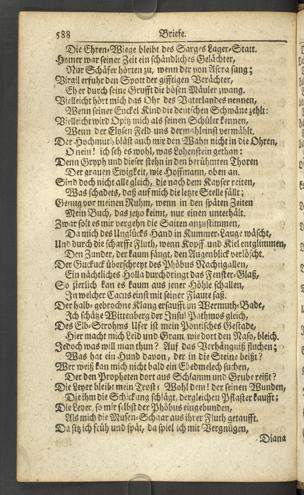 588 Briefe.
Die Ehren-Wiege bleibt des Sarges Lager-Statt.
Homer war seiner Zeit ein schändliches Gelächter,
Nur Schäfer hörten zu, wenn der von Ascra sang;
Virgil erfuhr den Spott der gifftigen Verächter,
Eh er durch seine Grufft die bösen Mäuler zwang.
Vielleicht hört mich das Ohr des Vaterlandes nennen,
Wenn seiner Enckel Kind die deutschen Schwäne zehlt:
Vielleicht wird Opitz mich als seinen Schüler kennen,
Wenn der Elysen Feld uns dermahleinst vermählt.
Der Hochmuth bläst auch mir den Wahn nicht in die Ohren,
O nein! ich seh es wohl, was Lohenstein gethan:
Denn Gryph und dieser stehn in den berühmten Thoren
Der grauen Ewigkeit, wie Hoffmann, oben an.
Sind doch nicht alle gleich, die nach dem Kayser reiten,
Was schadets, daß auf mich die letzte Stelle fällt;
Genug vor meinen Ruhm, wenn in den späten Zeiten
Mein Buch, das jetzo keimt, nur einen unterhält.
Zwar solt es mir vergehn die Saiten anzustimmen,
Da mich des Unglücks Hand in Kummer-Lauge wäscht,
Und durch die scharffe Fluth, wenn Kopff und Kiel entglimmen,
Den Zunder, der kaum fängt, den Augenblick verlöscht.
Der Guckuck überschreyt des Phöbus Nachtigallen,
Ein nächtliches Holla durchdringt das Fenster-Glaß,
So zierlich kan es kaum aus jener Höhle schallen,
In welcher Cacus einst mit seiner Flaute saß.
Der halb-gebrochne Klang ersäufft im Wermuth-Bade,
Ich schätze Wittenberg der Insul Pathmos gleich,
Des Elb-Strohms Ufer ist mein Pontisches Gestade,
Hier macht mich Leid und Gram, wie dort den Naso, bleich.
Jedoch was will man thun? Auf das Verhängniß fluchen;
Was hat ein Hund davon, der in die Steine beißt?
Wer weiß kan mich nicht bald ein Ebedmelech suchen,
Der den Propheten dort aus Schlamm und Grube reist?
Die Leyer bleibt mein Trost: Wohl dem! der seinen Wunden,
Die ihm die Schickung schlägt, dergleichen Pflaster kaufft;
Die Leyer, so mir selbst der Phöbus eingebunden,
Als mich die Musen-Schaar aus ihrer Fluth getaufft.
Da sitz ich früh und spät, da spiel ich mit Vergnügen,
Diana